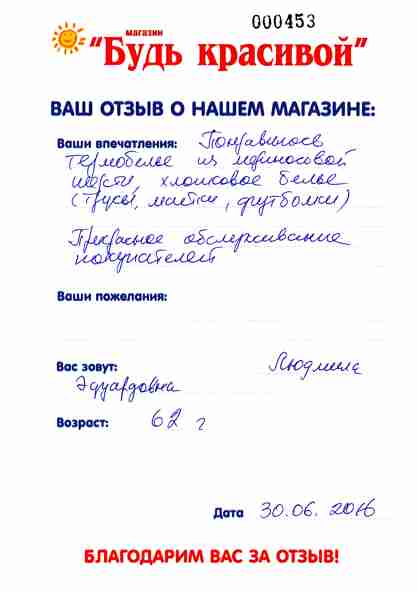 000453
магазин
"Будь красивой"
ВАШ ОТЗЫВ О НАШЕМ МАГАЗИНЕ:
Ваши впечатления: Понравилось
термобелье из мериносовой
шерсти, хлопковое белье
(трусы, майки, футболки)
Прекрасное обслуживание
покупателей
Ваши пожелания:
Вас зовут: Людмила
Эдуардовна
Возраст: 62 г
Дата 30.06.2016
БЛАГОДАРИМ ВАС ЗА ОТЗЫВ!